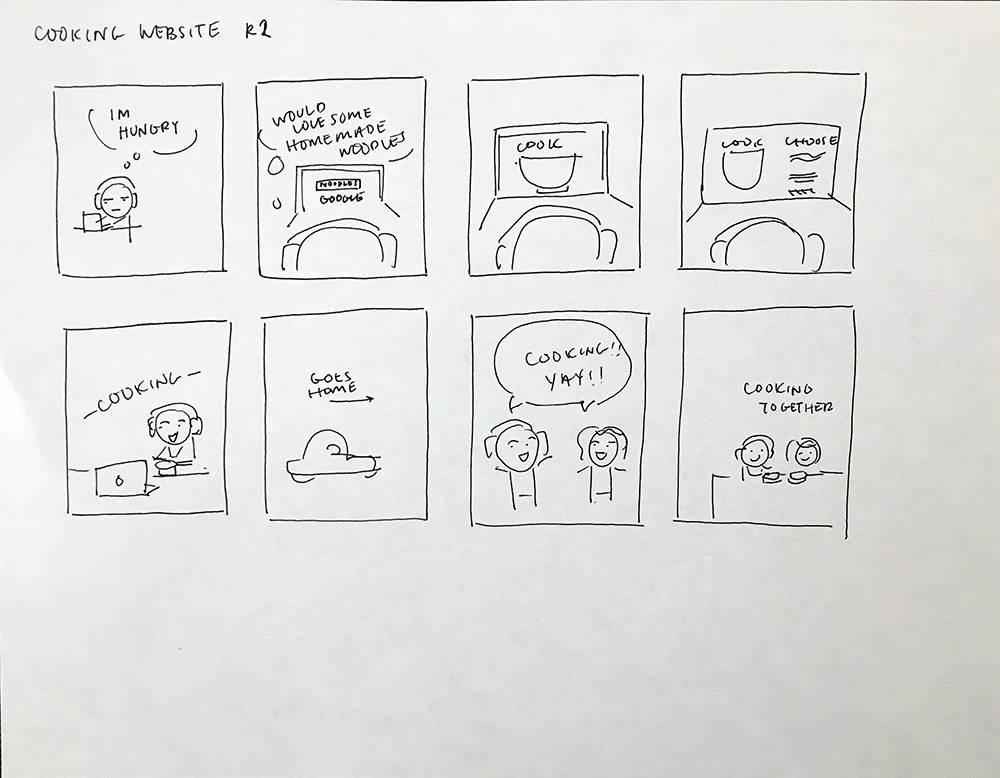 COOKING WEBSITE R2
IM
HUNGRY
WOULD
LOVE SOME
HOMEMADE
NOODLES
NOODLES
GOOGLE
COOK
COOK
CHOOSE
-COOKING-
GOES
HOME
COOKING!!
YAY!!
COOKING
TOGETHER